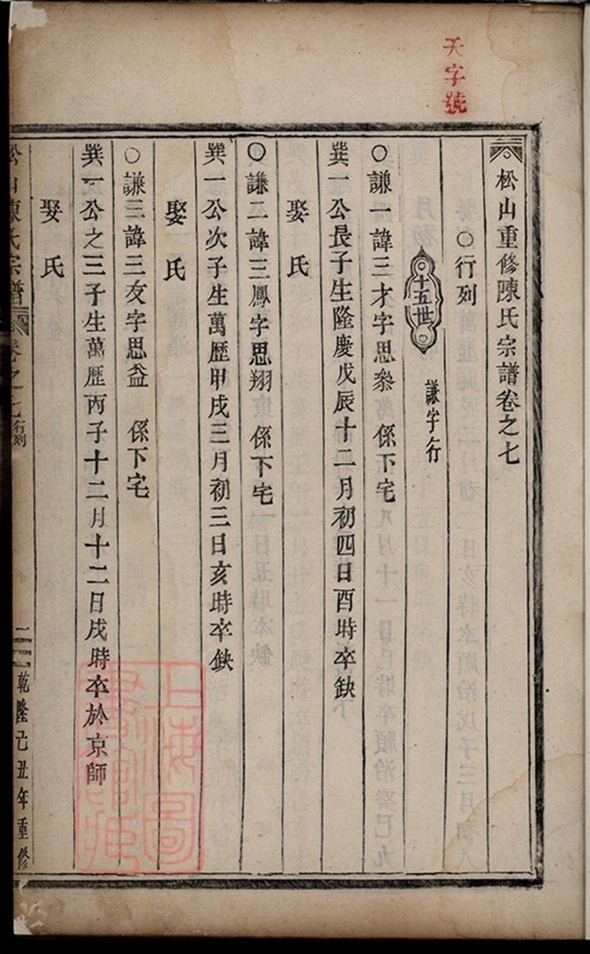 天字號
松山重修陳氏宗譜卷之七
○行列
十五世
謙字行
○謙一諱三才字思叅 係下宅
巽一公長子生隆慶戊辰十二月初四日酉時卒缺
娶 氏
○謙二諱三鳳字思翔 係下宅
巽一公次子生萬歷甲戌三月初三日亥時卒缺
娶 氏
○謙三諱三友字思益 係下宅
巽一公之三子生萬歷丙子十二月十二日戌時卒於京師
娶 氏
松山陳氏宗譜 卷之七 行列 一 乾隆己丑年重修
上海圖